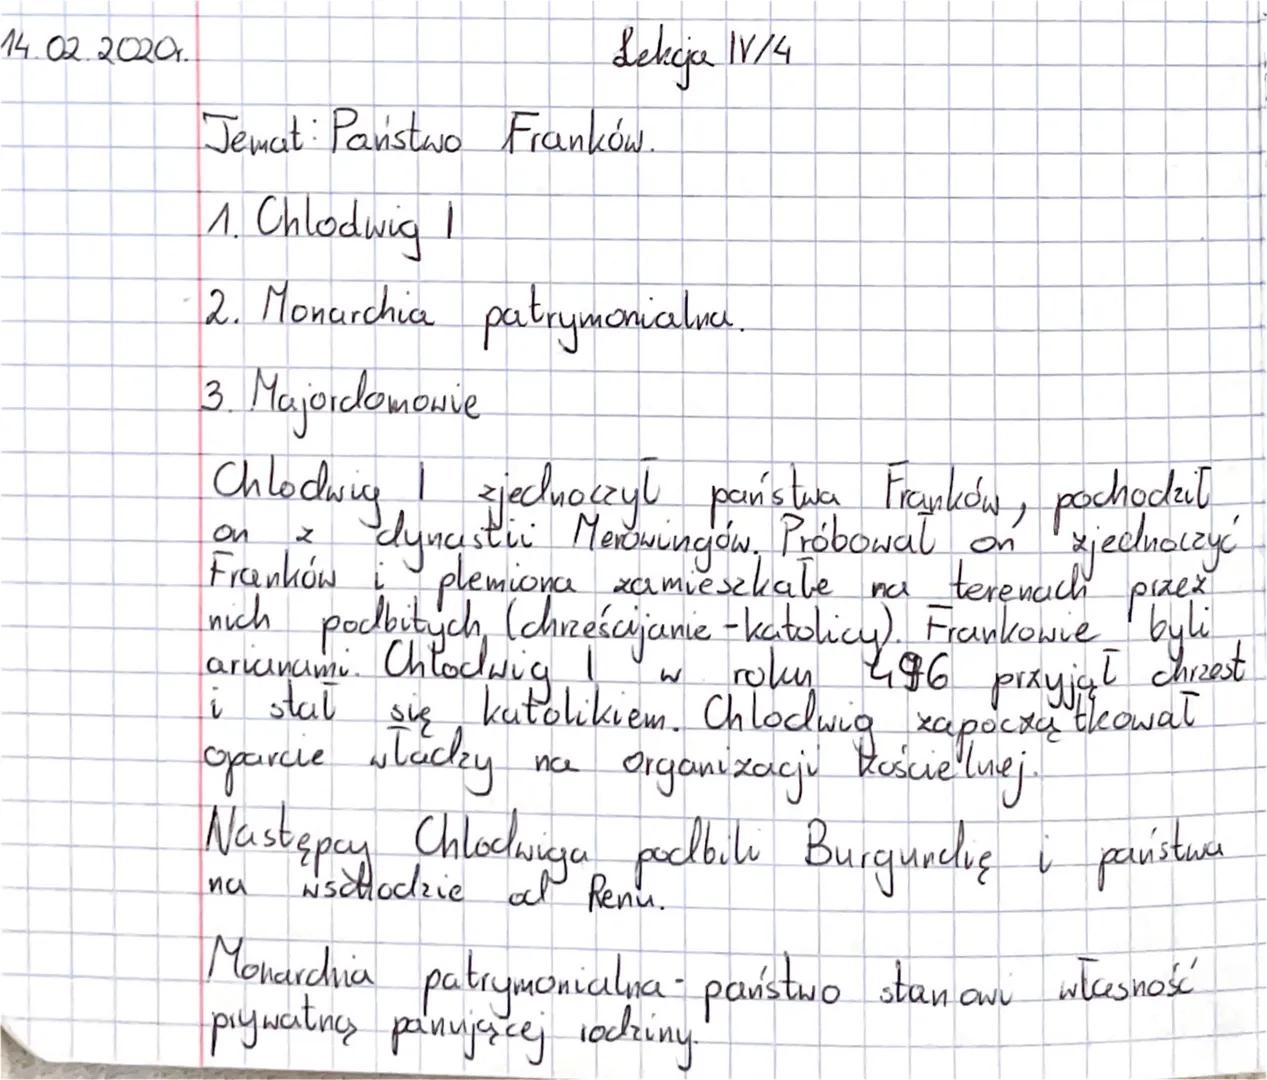 14.02.2020r.
Lekcja IV/4
Temat: Państwo Franków.
1. Chlodwig I
2. Monarchia patrymonialna.
3. Majordomowie
Chlodwig I zjednoczył państwa Franków, pochodził
on z dynastii Merowingów. Próbował on zjednoczyć
Franków i plemiona zamieszkałe na terenach przez
nich podbitych (chrześcijanie - katolicy). Frankowie byli
arianami. Chlodwig I w roku 496 przyjął chrzest
i stał się katolikiem. Chlodwig zapoczątkował
oparcie władzy na organizacji kościelnej.
Następcy Chlodwiga podbili Burgundię i państwa
na wschodzie od Renu.
Monarchia patrymonialna - państwo stanowi własność
prywatną panującej rodziny.